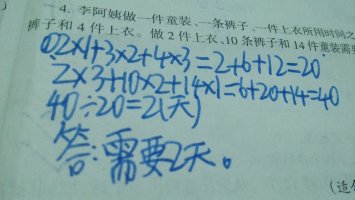 4. 李阿姨做一件童装、一条裤子、一件上衣所用时间之
裤子和 4 件上衣。做 2 件上衣、10 条裤子和 14 件童装需
①2×1+3×2+4×3=2+6+12=20
2×3+10×2+14×1=6+20+14=40
40÷20=2(天)
答:需要2天。
(适